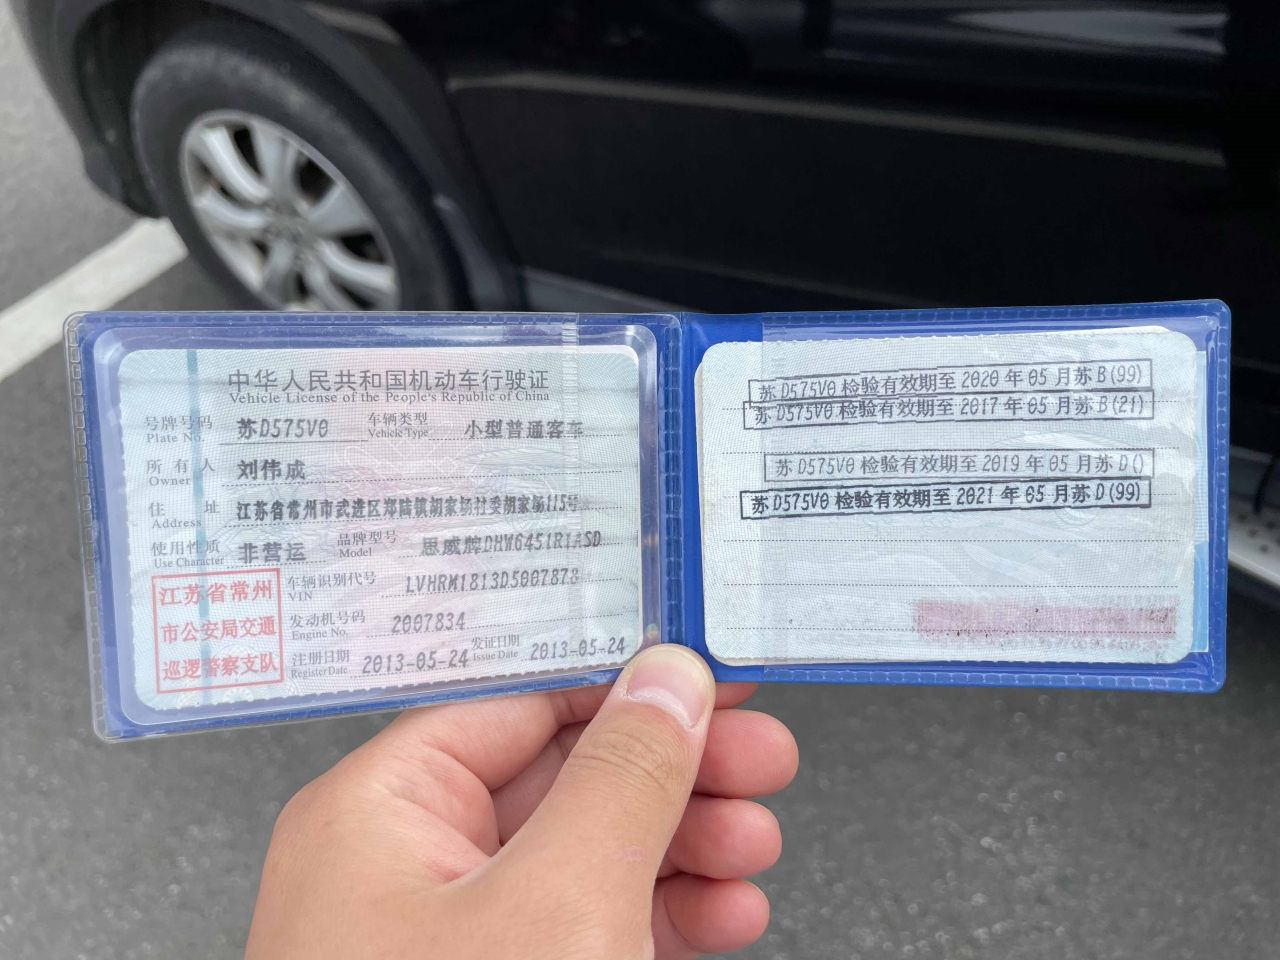 中华人民共和国机动车行驶证
Vehicle License of the People's Republic of China
号牌号码 苏D575V0 车辆类型 小型普通客车
Plate No. Vehicle Type
所有人 刘伟成
Owner
住址 江苏省常州市武进区郑陆镇胡家场村委胡家场115号
Address
使用性质 非营运 品牌型号 思威牌DHW6451R1ASD
Use Character Model
江苏省常州
市公安局交通
巡逻警察支队
车辆识别代号 LVHRM1813D5007878
VIN
发动机号码 2007834
Engine No.
注册日期 2013-05-24 发证日期 2013-05-24
Register Date Issue Date
苏D575V0 检验有效期至 2020 年 05 月苏 B(99)
苏D575V0 检验有效期至 2017 年 05 月苏 B(21)
苏 D575V0 检验有效期至 2019 年 05 月苏 D()
苏 D575V0 检验有效期至 2021 年 05 月苏 D(99)